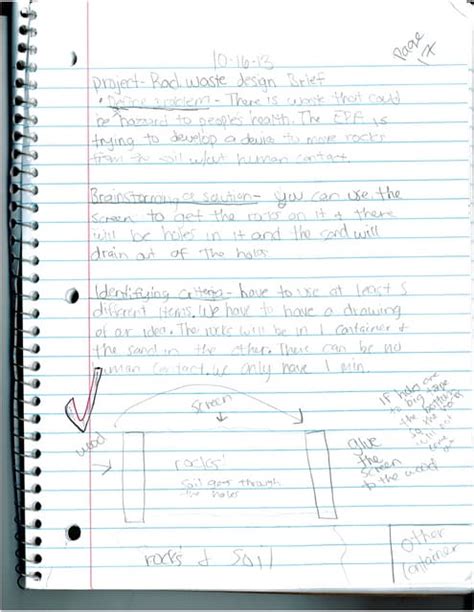 10-16-13
Page 17
Project- Rad waste design Brief
Define problem - There is waste that could
be hazard to people's health. The EPA is
trying to develop a device to move rocks
from the soil w/out human contact.
Brainstorming a solution - you can use the
screen to get the rocks on it & there
will be holes in it and the sand will
drain out of the holes
Identifying criteria - have to use at least 5
different items. We have to have a drawing
of our idea. The rocks will be in 1 container &
the sand in the other. There can be no
human contact. We only have 1 min.
screen
wood
rocks
soil goes through
the holes
glue
the
screen
to the wood
if holes are
to big tape
the
so the
will
out
rocks & soil
Other
container